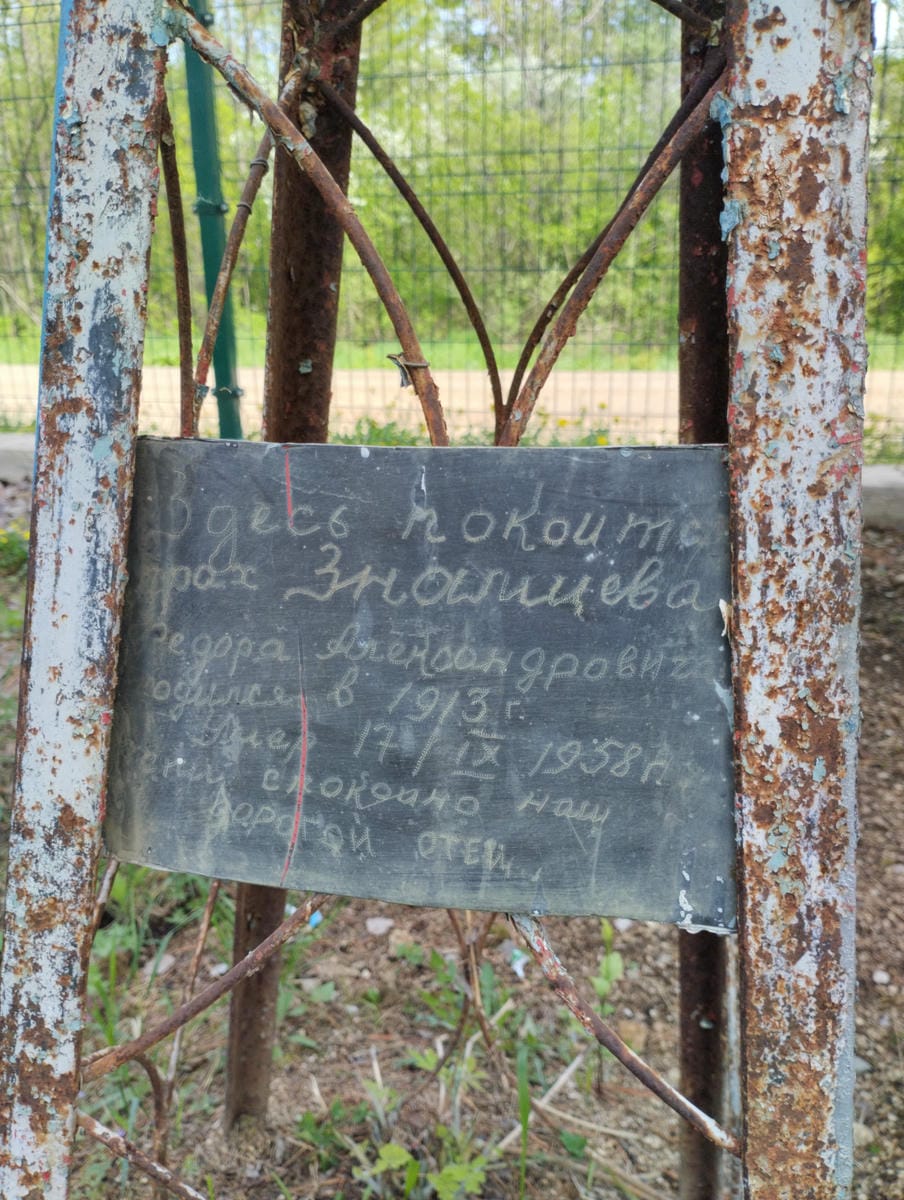 Здесь покоится
прах Знатищева
Федора Александровича
одился в 1913 г.
Умер 17/IX 1958 г.
спокойно наш
дорогой отец.